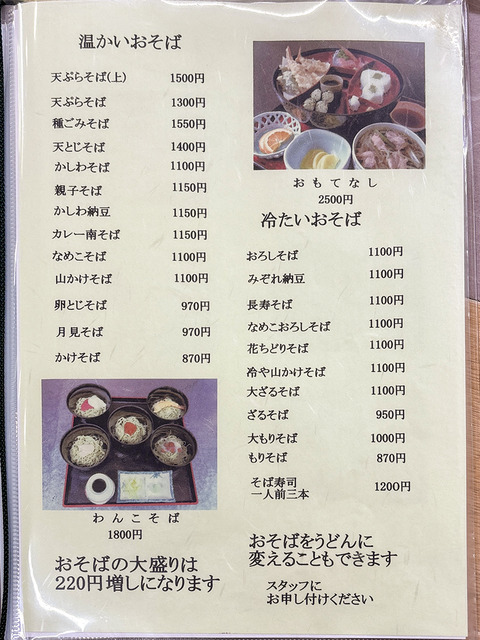 温かいおそば
天ぷらそば(上) 1500円
天ぷらそば 1300円
種ごみそば 1550円
天とじそば 1400円
かしわそば 1100円
親子そば 1150円
かしわ納豆 1150円
カレー南そば 1150円
なめこそば 1100円
山かけそば 1100円
卵とじそば 970円
月見そば 970円
かけそば 870円
わんこそば
1800円
おそばの大盛りは
220円増しになります
おもてなし
2500円
冷たいおそば
おろしそば 1100円
みぞれ納豆 1100円
長寿そば 1100円
なめこおろしそば 1100円
花ちどりそば 1100円
冷や山かけそば 1100円
大ざるそば 1100円
ざるそば 950円
大もりそば 1000円
もりそば 870円
そば寿司
一人前三本 1200円
おそばをうどんに
変えることもできます
スタッフに
お申し付けください